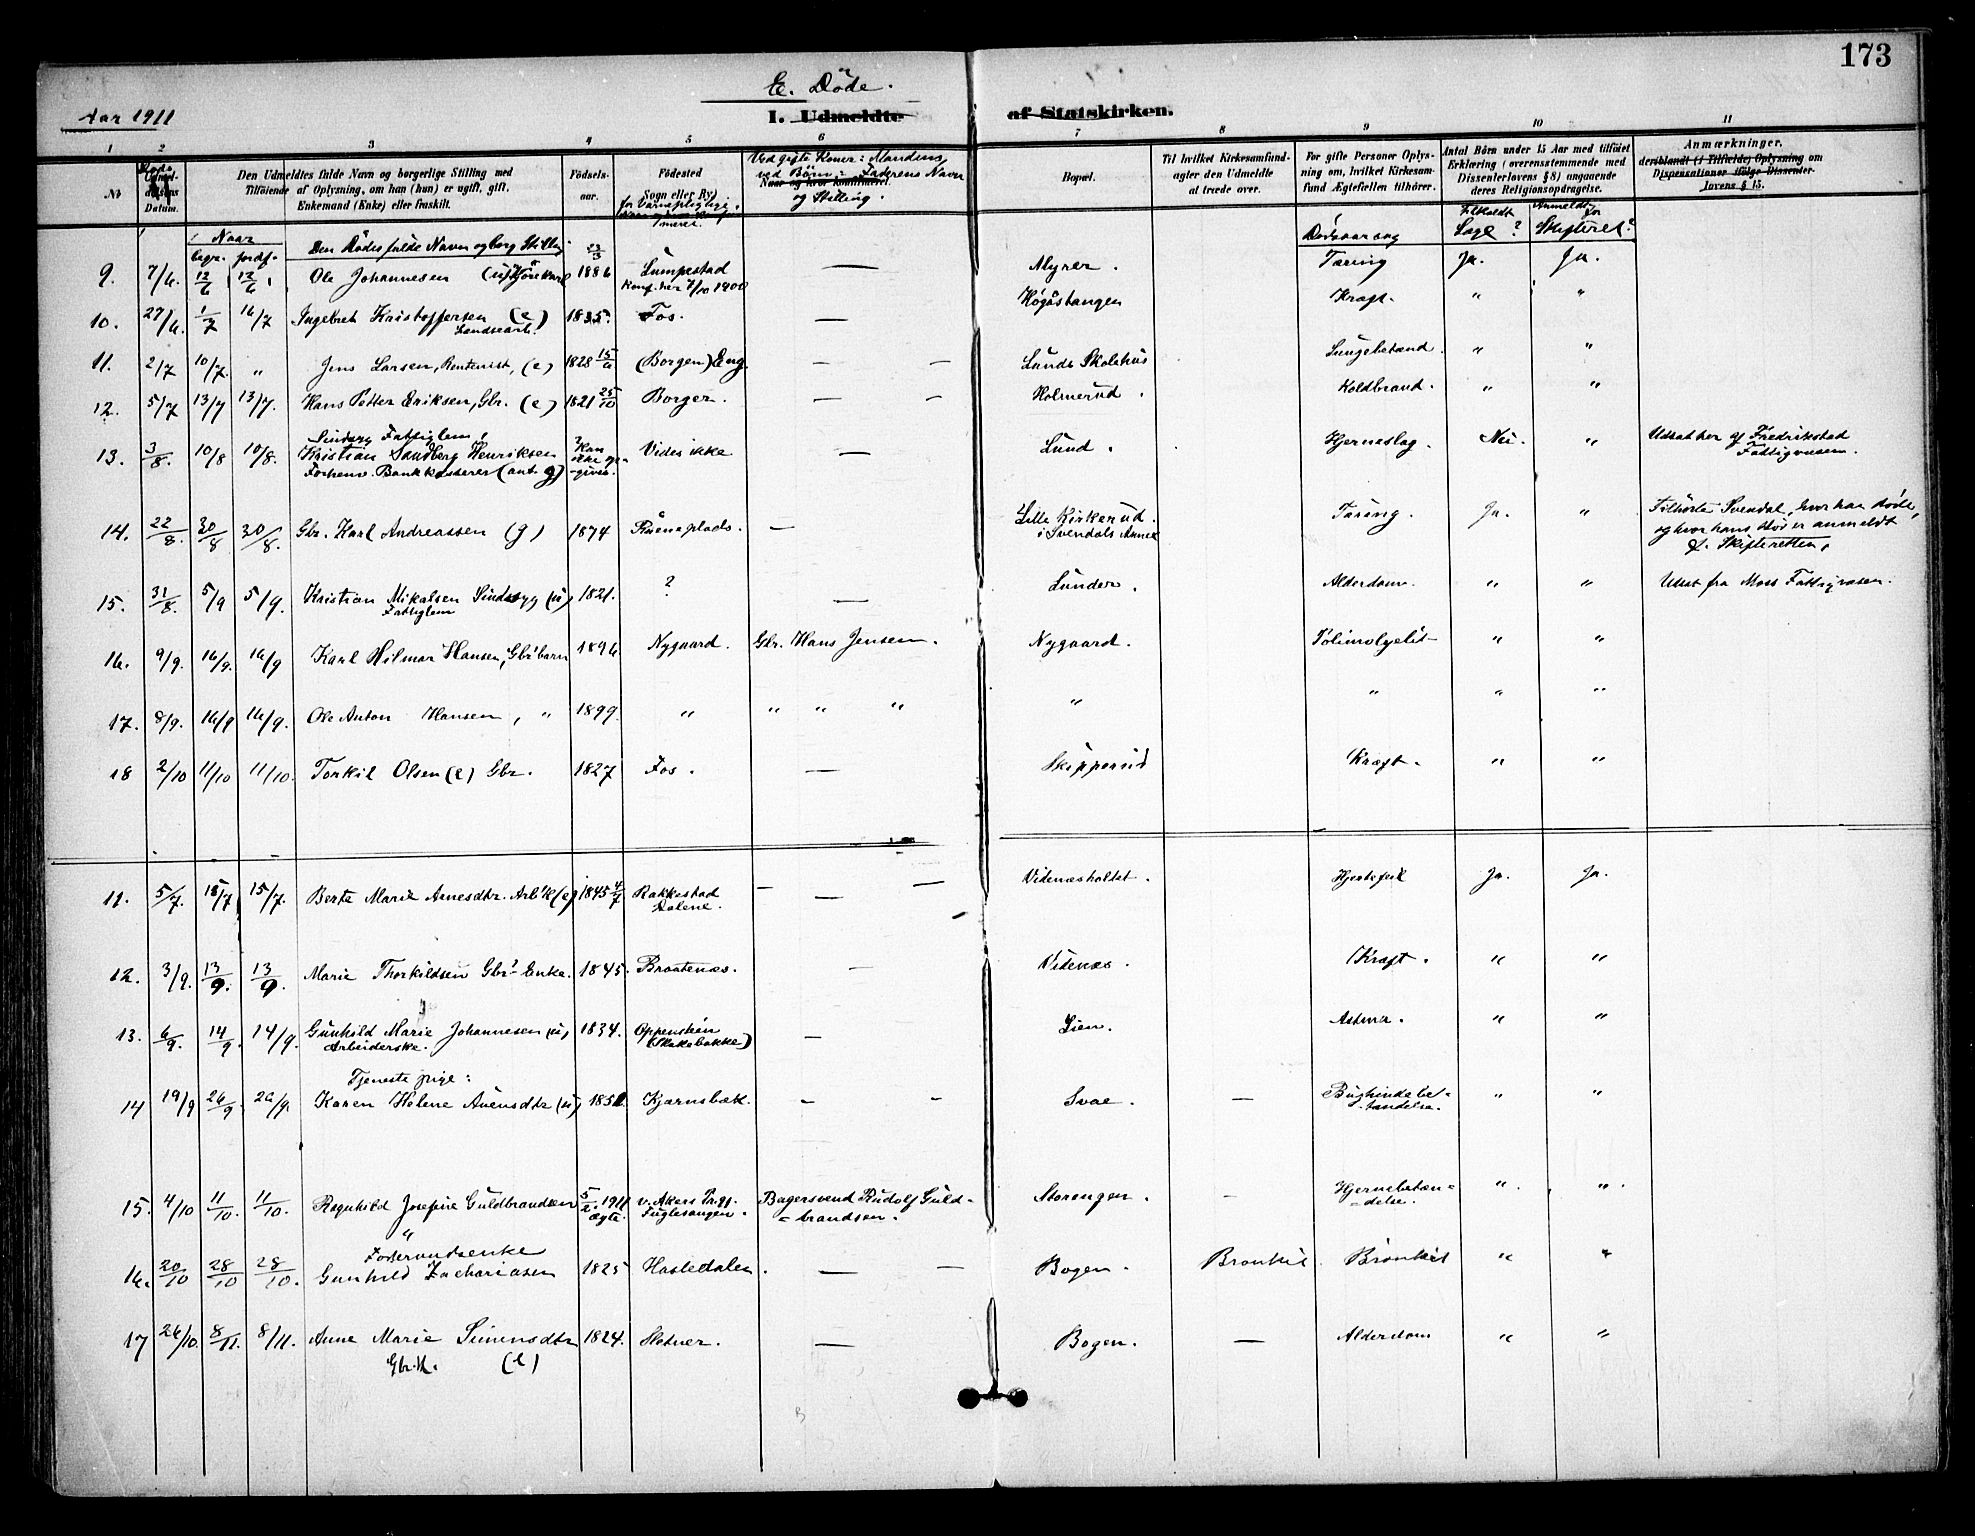 173
Aar 1911
E. Döde.
1. Udmeldte af Statskirken.
1 2 3 4 5 6 7 8 9 10 11
No
Döds
Datum.
Den Udmeldtes fulde Navn og borgerlige Stilling med
Tilföiende af Oplysning, om han (hun) er ugift, gift,
Enkemand (Enke) eller fraskilt.
Födsels-
aar.
Födested
(Sogn eller By)
for Værnepligtige
Ved gifte Koner: Mandens,
ved Börn: Faderens Navn
og Stilling.
Bopæl.
Til hvilket Kirkesamfund-
agter den Udmeldte
at træde over.
For gifte Personer Oplys-
ning om, hvilket Kirkesam-
fund Ægtefællen tilhörer.
Antal Börn under 15 Aar med tilföiet
Erklæring i overensstemmende med
Dissenterlovens § 8) angaaende
deres Religionsopdragelse.
Anmærkninger,
deriblandt (i Tilfælde) Oplysning om
Dispensationer ifölge Dissenter-
lovens § 15.
Naar
begr. jordf.
Den Dödes fulde Navn og borg Stilling
Dödsaarsag
Tilkaldt
Læge?
Anmeldt for
Skifteret?
9. 7/6. 12/6 12/6 Ole Johannesen (u) 23/3 1886 Lumpestad — Myrer. Tæring Ja. Ja.
Konf. her 7/10 1900
10. 27/6. 1/7 16/7 Ingebret Kristoffersen (e) 1835. Fos. — Högåstangen Kræft. " "
11. 2/7 10/7. " Jens Larsen, Rentenist, (e) 1828 15/6 (Borgen) Eng. — — Lunds Skolehus Lungebetænd. " "
12. 5/7 13/7 13/7. Hans Petter Eriksen, Gbr. (e) 1821 25/10 Borger. — — Holmerud. Koldbrand. " "
Sindsyg Fattiglem,
13. 3/8. 10/8 10/8. Kristian Sandberg Henriksen ? Kan ikke op-givis. Vides ikke — Lund. Hjerneslag. Nei. " Udsat her af Fredrikstad
Forhenv. Bankkasserer (ant. g) Fattigvæsen.
14. 22/8. 30/8 30/8. Gbr. Karl Andreassen (g) 1874 Råeneplads. — Lille Kirkerud. Tæring. Ja. " Tilhörte Svendal, hvor han döde,
i Svendals Annex og hvor hans död er anmeldt
t. Skifteretten.
15. 31/8. 5/9 5/9. Kristian Mikalsen Sindssyg (u) 1821. ? — Lunder. Alderdom. " " Udsat fra Moss Fattigvæsen.
Fattiglem
16. 9/9. 16/9. 16/9 Karl Hilmar Hansen, Gbr's barn 1896 Nygaard. Gbr. Hans Jensen. Nygaard. Polimolyelit " "
17. 8/9. 16/9 16/9. Ole Anton Hansen, " 1899. " " " " " " " "
18 2/10 11/10 11/10. Torkil Olsen (e) Gbr. 1827 Fos. — Skipperud Kræft. " "
11. 5/7. 15/7 15/7. Berte Marie Arnesdtr. Arb's K (e) 1845 4/7 Rakkestad — — — Videnæsholtet. Hjertefeil Ja. Ja.
Dalene.
12. 3/9. 13/9. 13/9. Marie Thorkildsen Gbr's Enke. 1845. Braatenæs. — Videnæs. Kræft. " "
13. 6/9. 14/9. 14/9. Gunhild Marie Johannesen (u) 1834. Oppenshén — Lien. Astma. " "
Arbeiderske. (Skakebakke)
Tjeneste pige:
14 19/9 26/9 26/9. Karen Helene Avensdtr (u) 1851 Kjærnsbæk. — — Svae. — Bughindebe- " "
-tændelse.
15. 4/10 11/10. 11/10. Ragnhild Josefine Guldbrandsen 5/2. 1911 v. Akers Prgj. Bagersvend Rudolf Guld- Storengen. — Hjernebetæn- " "
ægte. Fuglesangen. -brandsen. -delse.
Foderaadsenke
16. 20/10 28/10 28/10. Gunhild Zachariasen 1825 Hasledalen. — — Bogen. Bronkit Bronkit " "
17 26/10. 8/11. 8/11. Anne Marie Simensdtr 1824. Hetner. — Bogen. — Alderdom " "
Gbr. K. (e)